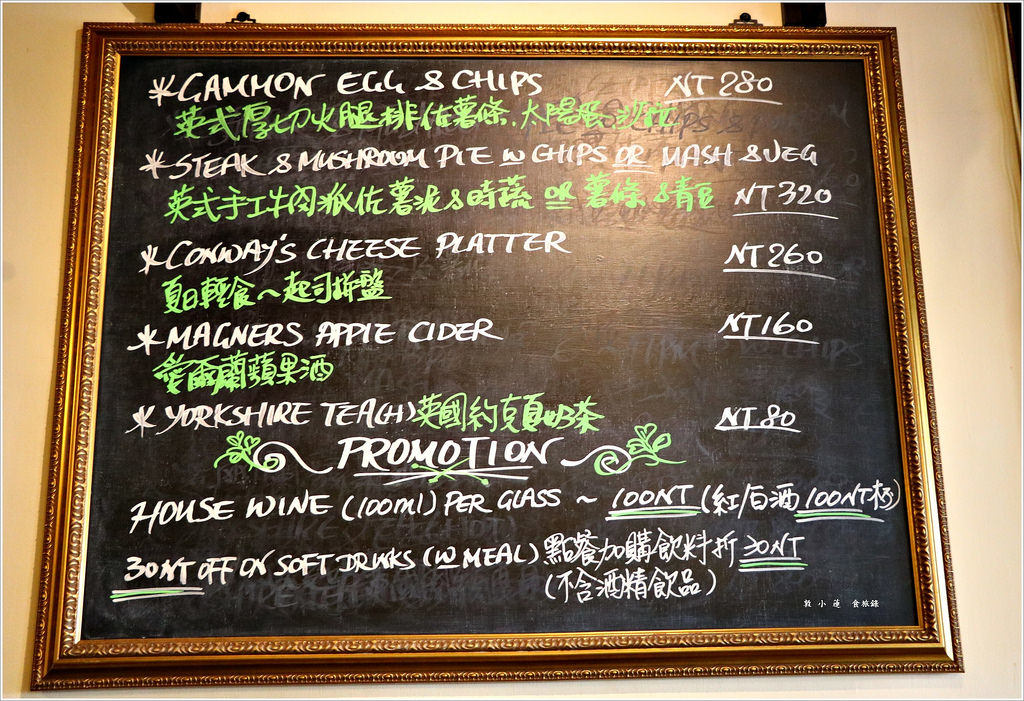 *GAMMON EGG & CHIPS NT 280
英式厚切火腿排佐薯條.太陽蛋.沙拉
*STEAK & MUSHROOM PIE W CHIPS OR MASH & VEG
英式手工牛肉派佐薯泥&時蔬 or 薯條&青豆 NT 320
*CONWAY'S CHEESE PLATTER NT 260
夏日輕食~起司拼盤
*MAGNERS APPLE CIDER NT 160
愛爾蘭蘋果酒
*YORKSHIRE TEA(H) 英國約克夏奶茶 NT 80
PROMOTION
HOUSE WINE (100ml) PER GLASS ~ 100NT (紅/白酒 100NT杯)
30NT OFF ON SOFT DRINKS (W MEAL) 點餐加購飲料折 30NT
(不含酒精飲品)
敦小蓮 食旅錄